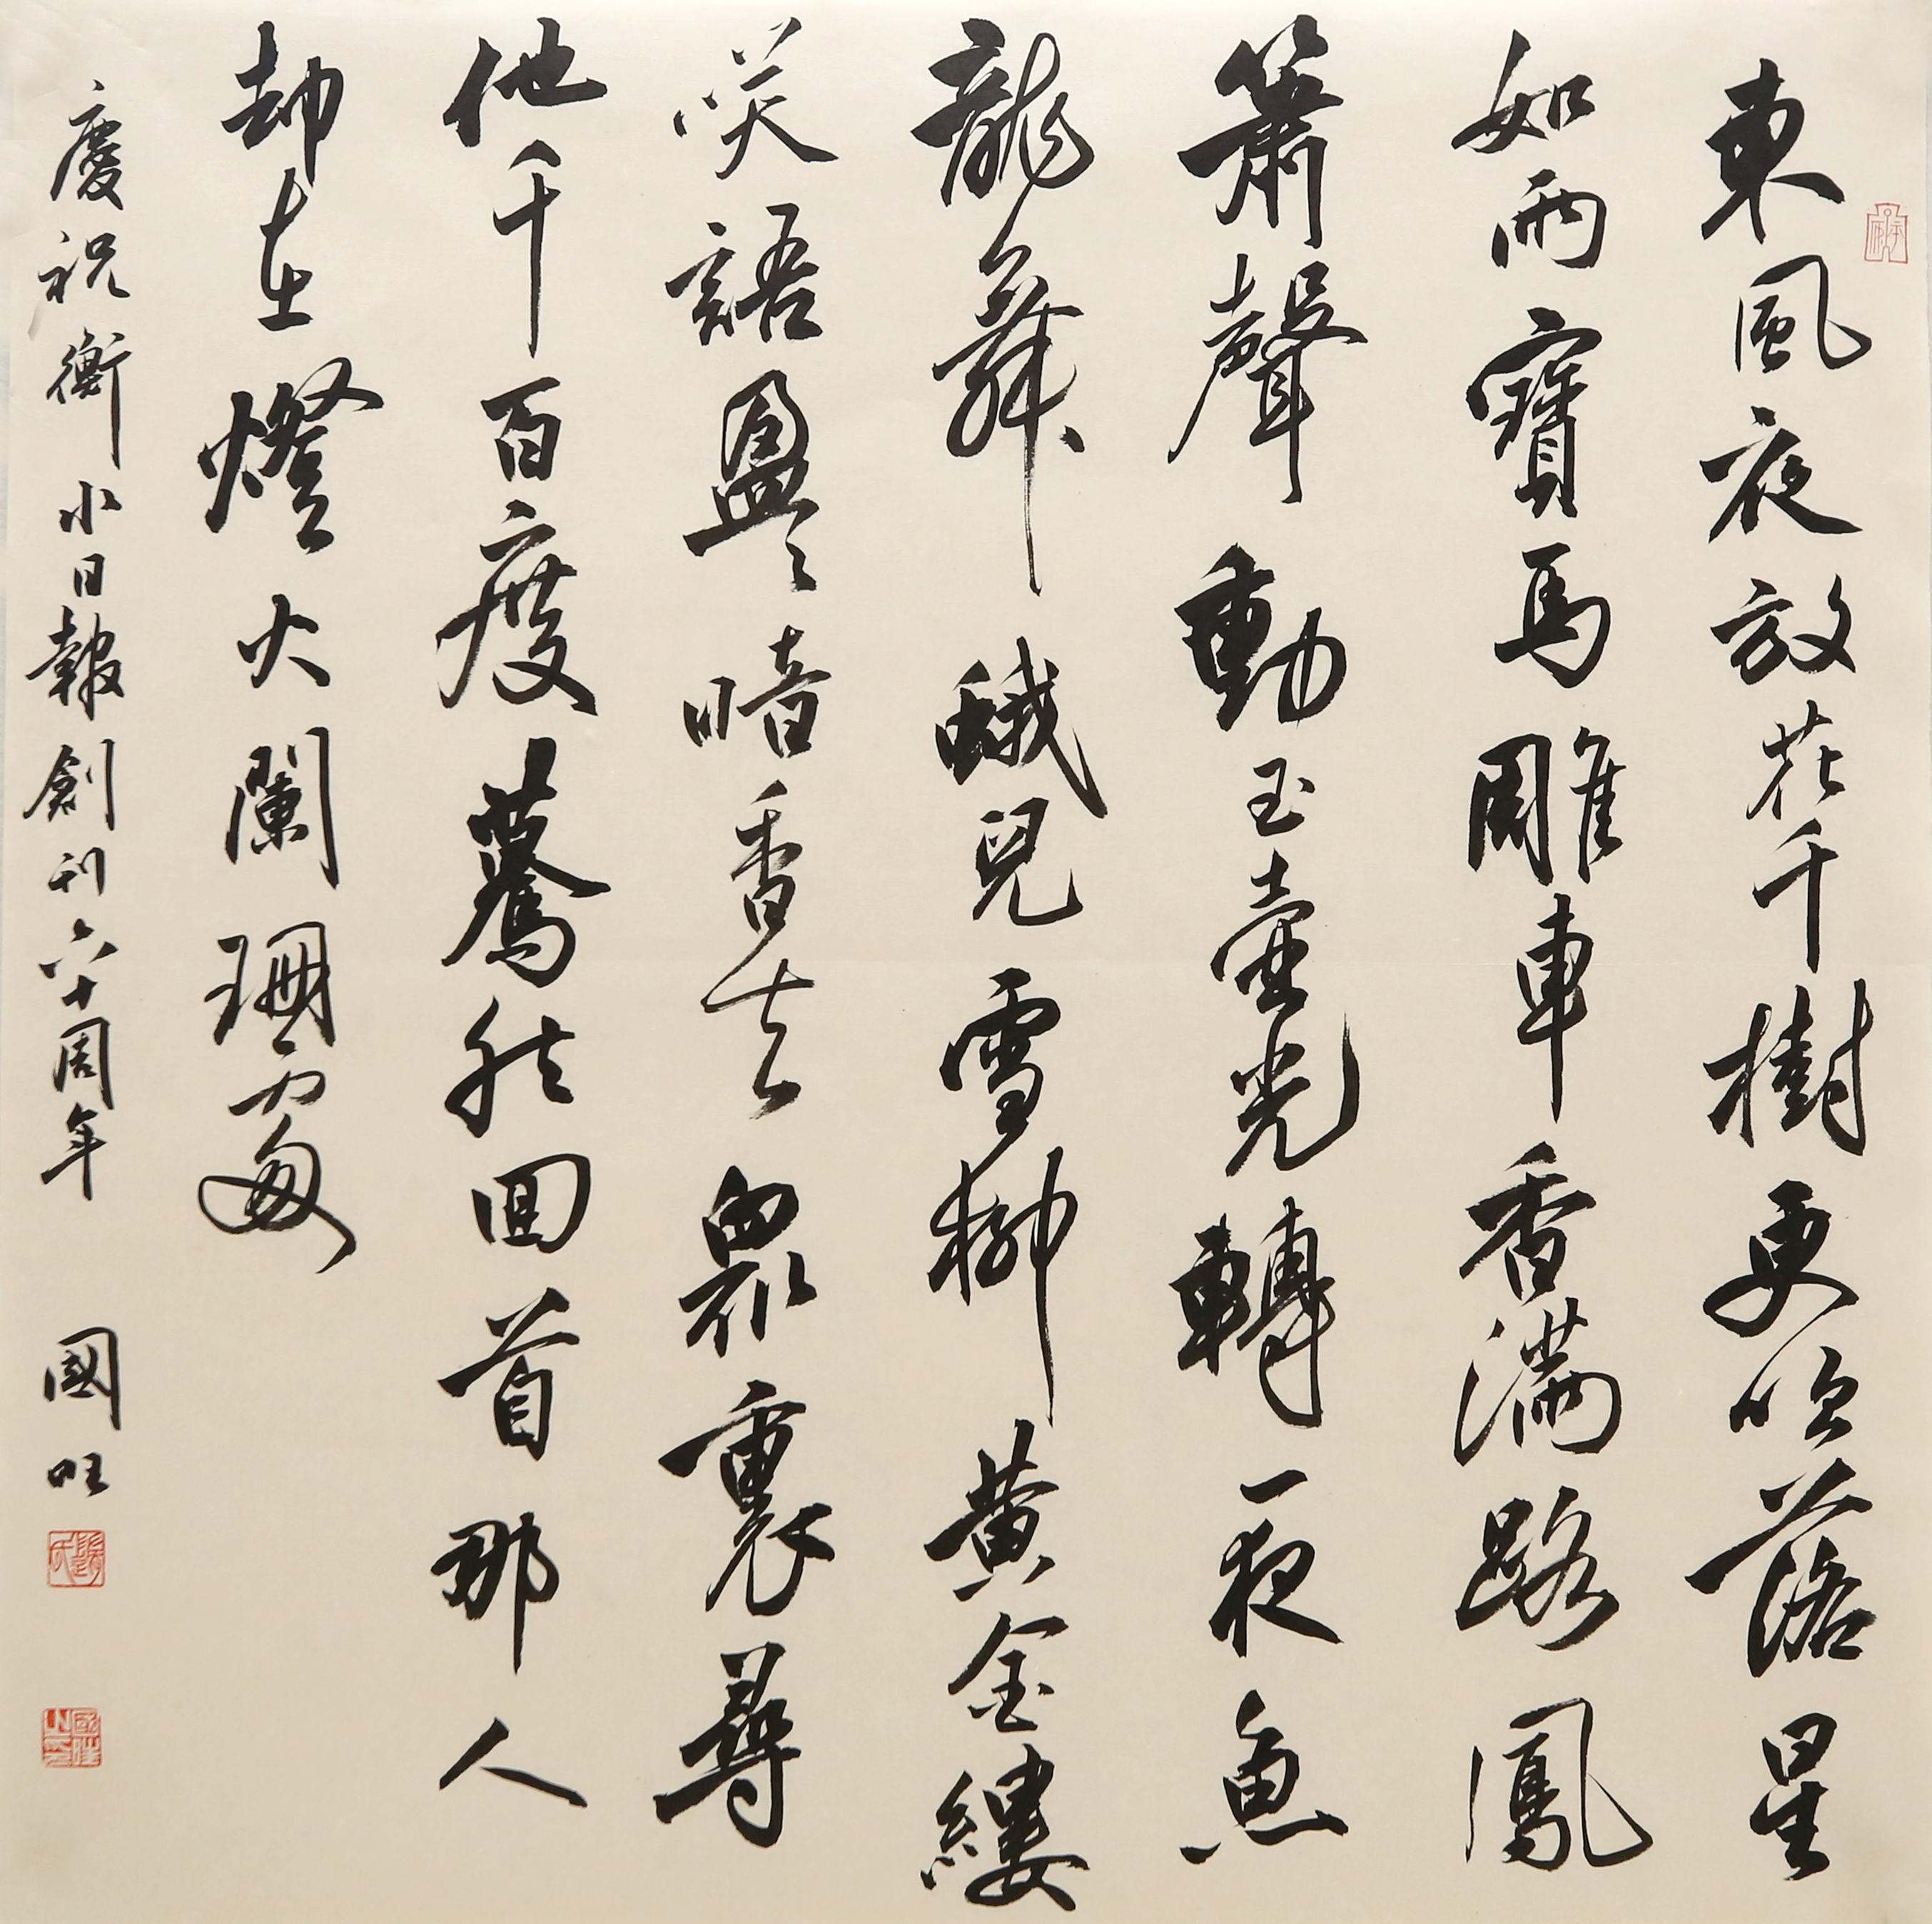 東風夜放花千樹更吹落星
如雨寶馬雕車香滿路鳳
簫聲動玉壺光轉一夜魚
龍舞蛾兒雪柳黃金縷
咲語盈々暗香去眾裏尋
他千百度驀然回首那人
却在燈火闌珊處
慶祝衡水日報創刊六十周年 國旺